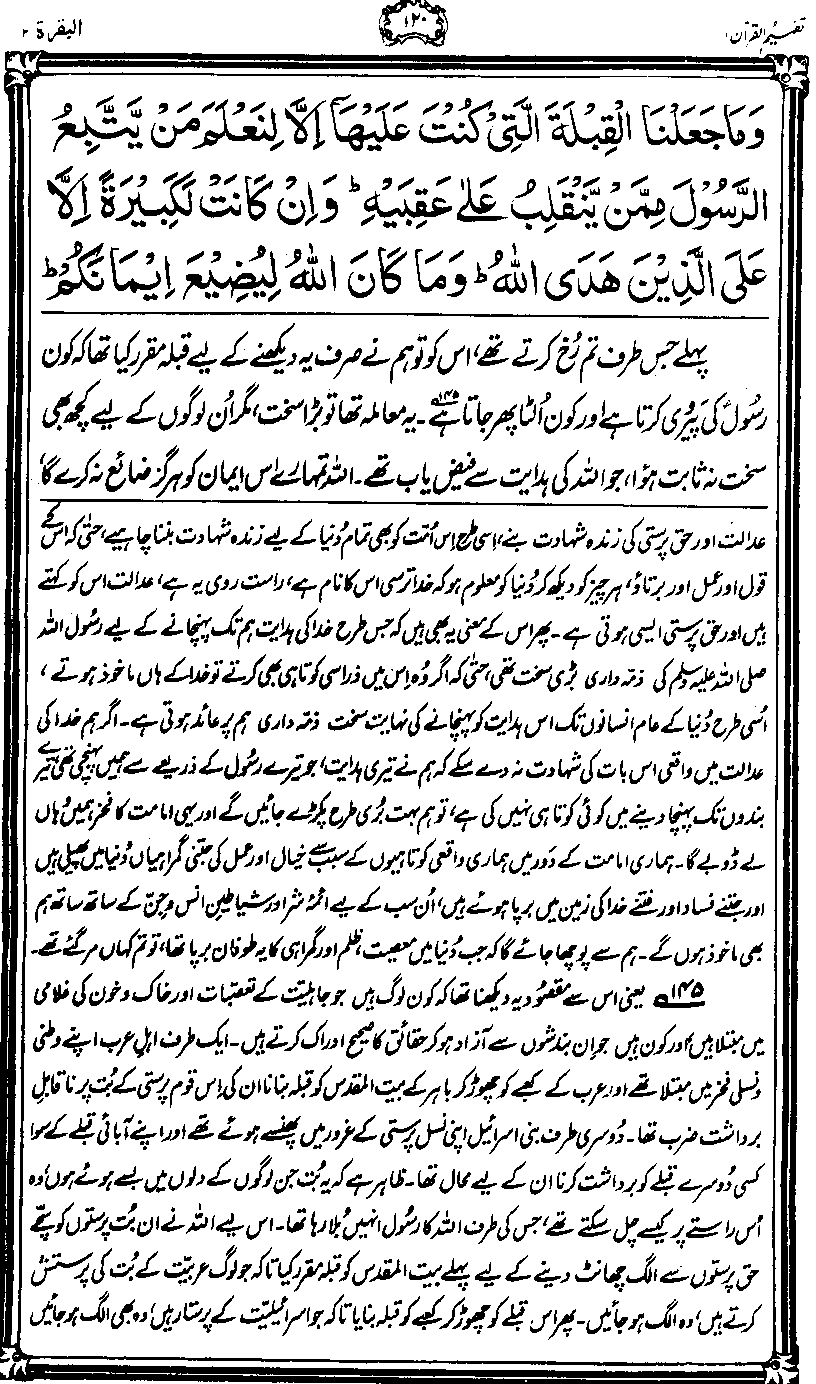 تفہیم القرآن ۱
۱۲۰
البقرۃ ۲
وَمَا جَعَلْنَا الْقِبْلَةَ الَّتِىْ كُنْتَ عَلَيْهَاۤ اِلَّا لِنَعْلَمَ مَنْ يَّتَّبِعُ
الرَّسُوْلَ مِمَّنْ يَّنْقَلِبُ عَلٰى عَقِبَيْهِ ؕ وَاِنْ كَانَتْ لَكَبِيْرَةً اِلَّا
عَلَى الَّذِيْنَ هَدَى اللّٰهُ ؕ وَمَا كَانَ اللّٰهُ لِيُضِيْعَ اِيْمَانَكُمْ ؕ
پہلے جس طرف تم رُخ کرتے تھے، اس کو تو ہم نے صرف یہ دیکھنے کے لیے قبلہ مقرر کیا تھا کہ کون
رسُولؐ کی پیروی کرتا ہے اور کون اُلٹا پھر جاتا ہے۱۴۵۔ یہ معاملہ تھا تو بڑا سخت، مگر اُن لوگوں کے لیے کچھ بھی
سخت نہ ثابت ہؤا، جو اللہ کی ہدایت سے فیض یاب تھے۔ اللہ تمہارے اس ایمان کو ہرگز ضائع نہ کرے گا
عدالت اور حق پرستی کی زندہ شہادت بنے، اِسی طرح اِس اُمّت کو بھی تمام دُنیا کے لیے زندہ شہادت بننا چاہیے، حتّٰی کہ اس کے
قول اور عمل اور برتاؤ، ہر چیز کو دیکھ کر دُنیا کو معلوم ہو کہ خدا ترسی اس کا نام ہے، راست روی یہ ہے، عدالت اس کو کہتے
ہیں اور حق پرستی ایسی ہوتی ہے۔ پھر اس کے معنی یہ بھی ہیں کہ جس طرح خدا کی ہدایت ہم تک پہنچانے کے لیے رسُول اللہ
صلی اللہ علیہ وسلم کی ذمّہ داری بڑی سخت تھی، حتّٰی کہ اگر وُہ اِس میں ذرا سی کوتاہی بھی کرتے تو خدا کے ہاں ماخوذ ہوتے،
اُسی طرح دُنیا کے عام انسانوں تک اس ہدایت کو پہنچانے کی نہایت سخت ذمّہ داری ہم پر عائد ہوتی ہے۔ اگر ہم خدا کی
عدالت میں واقعی اس بات کی شہادت نہ دے سکے کہ ہم نے تیری ہدایت، جو تیرے رسُول کے ذریعے سے ہمیں پہنچی تھی، تیرے
بندوں تک پہنچا دینے میں کوئی کوتاہی نہیں کی ہے، تو ہم بہت بُری طرح پکڑے جائیں گے اور یہی امامت کا فخر ہمیں وہاں
لے ڈوبے گا۔ ہماری امامت کے دَور میں ہماری واقعی کوتاہیوں کے سبب سے خیال اور عمل کی جتنی گمراہیاں دُنیا میں پھیلی ہیں
اور جتنے فساد اور فتنے خدا کی زمین میں برپا ہوئے ہیں، اُن سب کے لیے ائمۂ شر اور شیاطینِ انس و جِنّ کے ساتھ ساتھ ہم
بھی ماخوذ ہوں گے۔ ہم سے پوچھا جائے گا کہ جب دُنیا میں معصیت، ظلم اور گمراہی کا یہ طوفان برپا تھا، تو تم کہاں مر گئے تھے۔
۱۴۵ یعنی اس سے مقصُود یہ دیکھنا تھا کہ کون لوگ ہیں جو جاہلیّت کے تعصّبات اور خاک و خون کی غلامی
میں مبتلا ہیں، اور کون ہیں جو اِن بندشوں سے آزاد ہو کر حقائق کا صحیح ادراک کرتے ہیں۔ ایک طرف اہلِ عرب اپنے وطنی
و نسلی فخر میں مبتلا تھے اور عرب کے کعبے کو چھوڑ کر باہر کے بیت المقدس کو قبلہ بنانا ان کی اِس قوم پرستی کے بُت پر ناقابلِ
برداشت ضرب تھا۔ دُوسری طرف بنی اسرائیل اپنی نسل پرستی کے غرور میں پھنسے ہوئے تھے اور اپنے آبائی قبلے کے سوا
کسی دُوسرے قبلے کو برداشت کرنا ان کے لیے محال تھا۔ ظاہر ہے کہ یہ بُت جن لوگوں کے دلوں میں بسے ہوئے ہوں، وہ
اُس راستے پر کیسے چل سکتے تھے، جس کی طرف اللہ کا رسُول انہیں بُلا رہا تھا۔ اس لیے اللہ نے ان بُت پرستوں کو سچّے
حق پرستوں سے الگ چھانٹ دینے کے لیے پہلے بیت المقدس کو قبلہ مقرر کیا تاکہ جو لوگ عربیّت کے بُت کی پرستش
کرتے ہیں، وہ الگ ہو جائیں۔ پھر اس قبلے کو چھوڑ کر کعبے کو قبلہ بنایا تاکہ جو اسرائیلیّت کے پرستار ہیں، وہ بھی الگ ہو جائیں